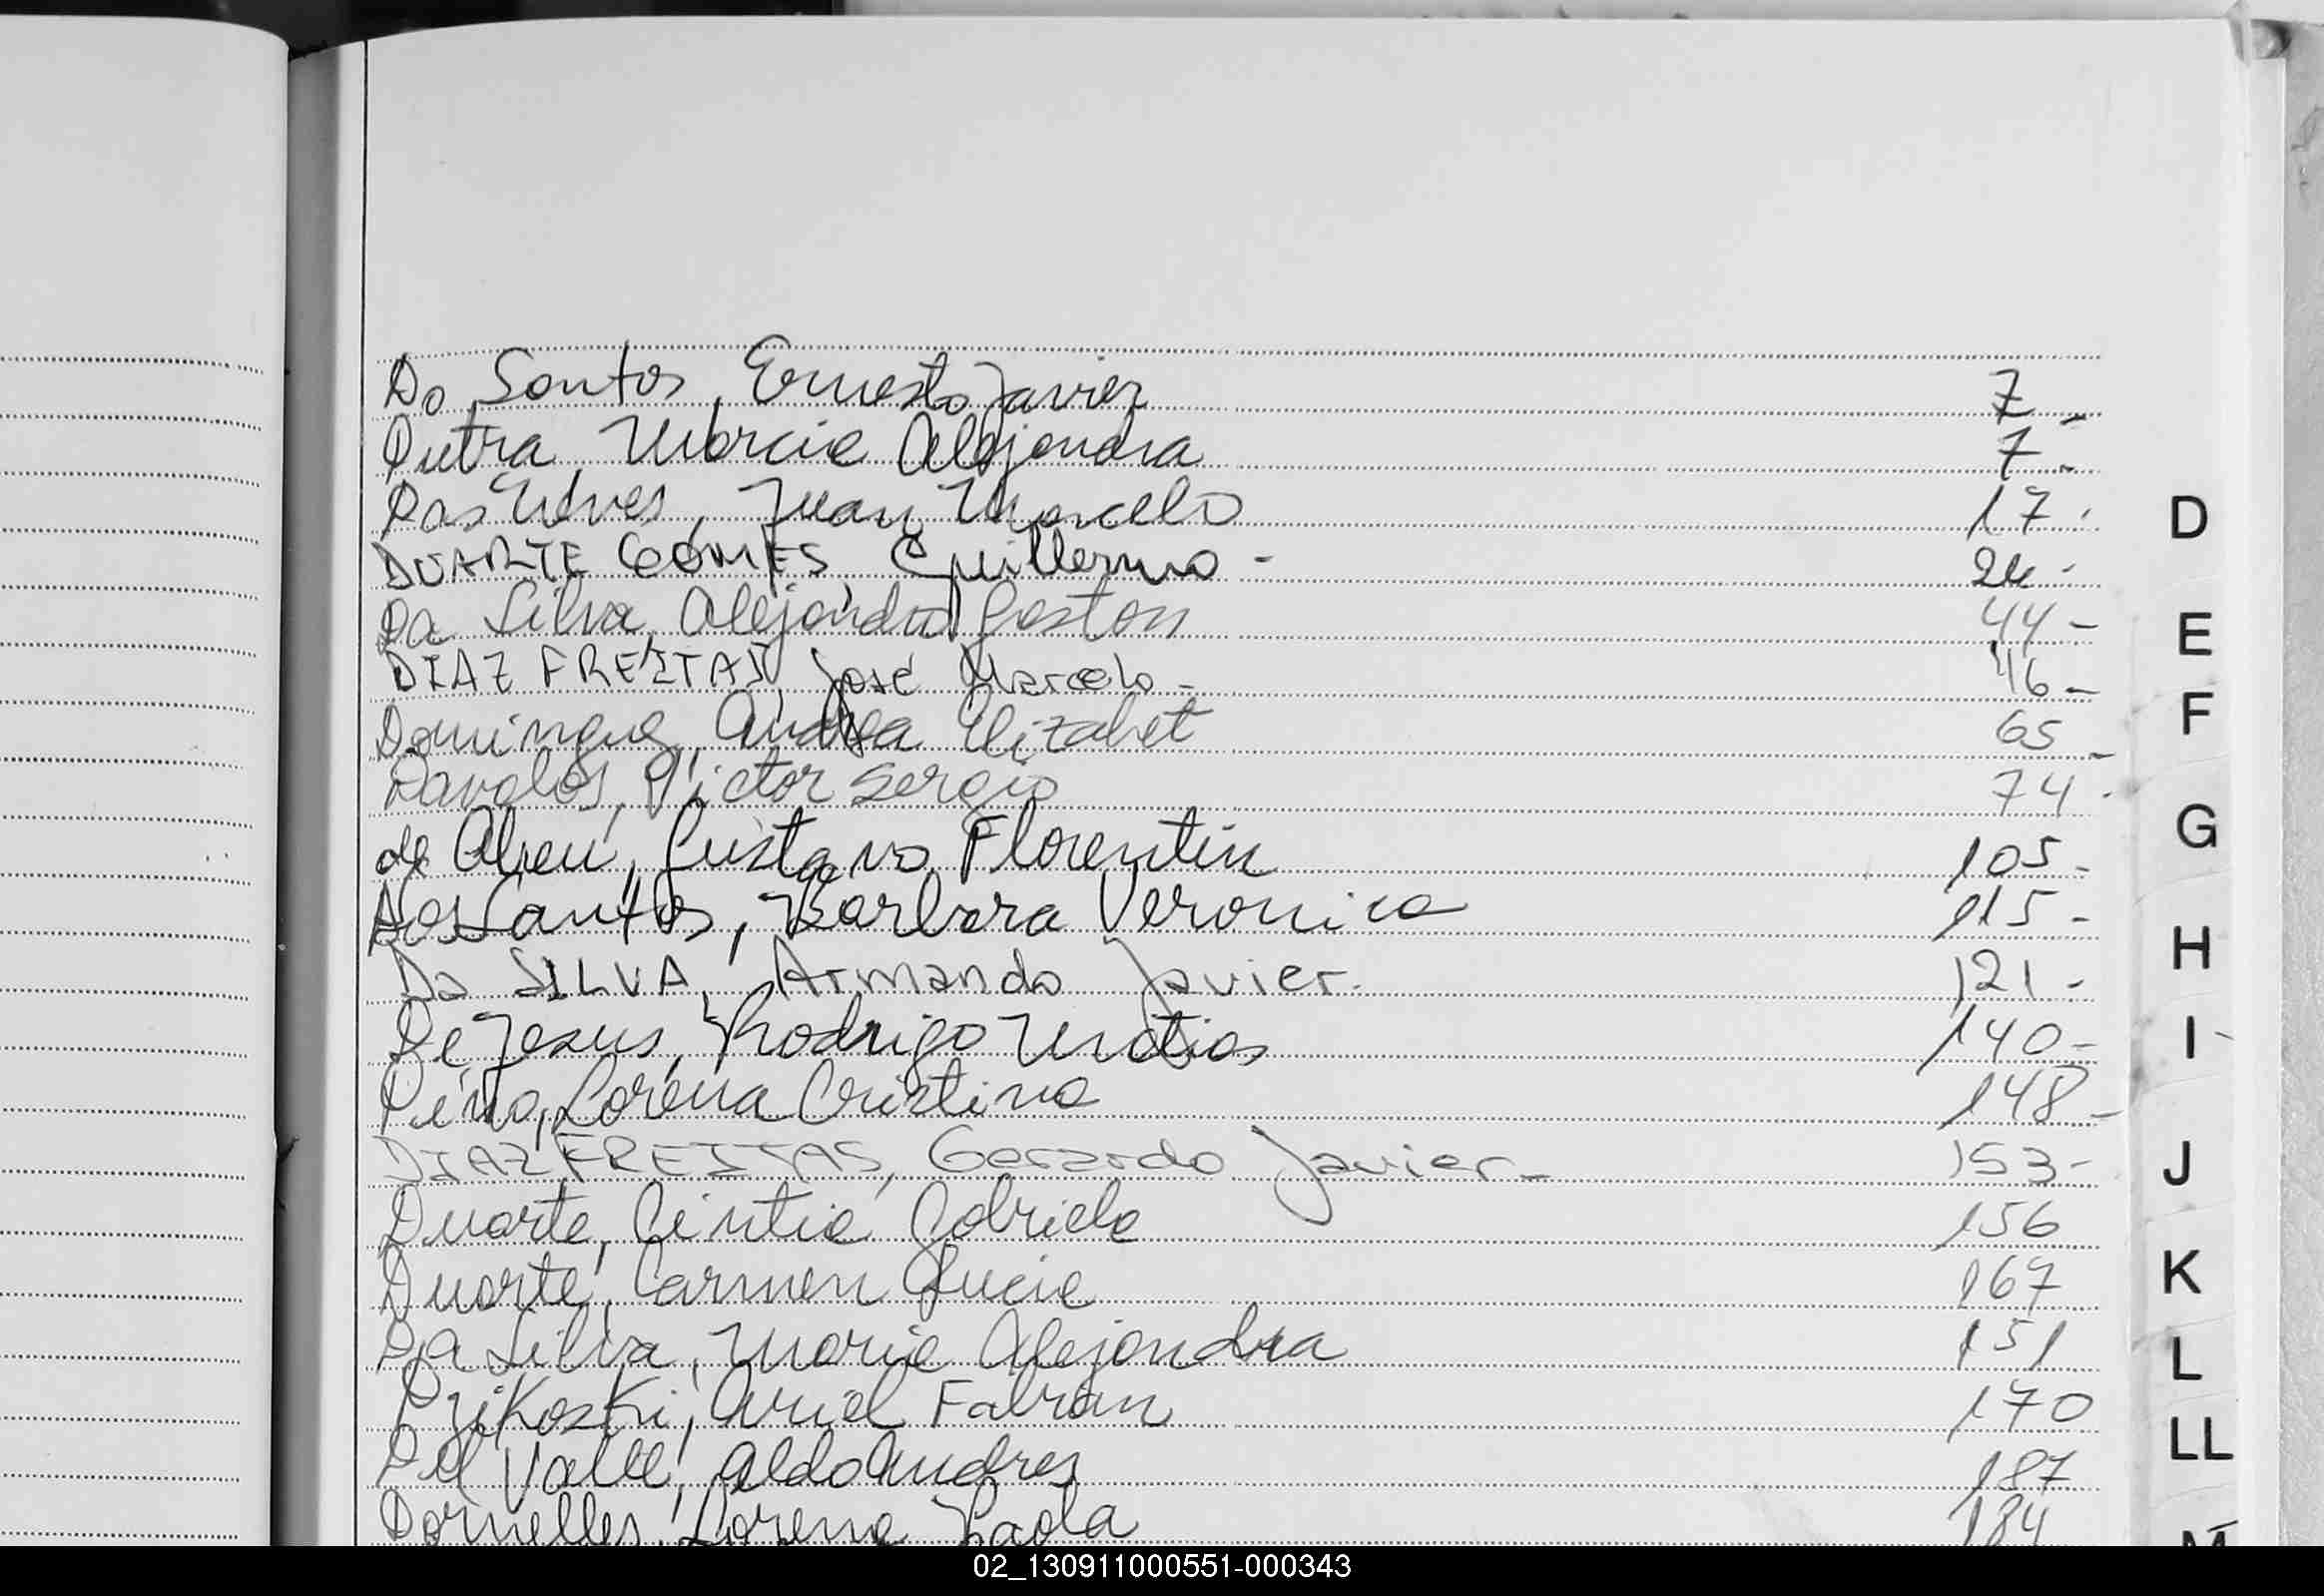 Do Santos, Ernesto Javier 7 -
Dutra, Marcia Alejandra 7 -
Das Neves, Juan Marcelo 17 -
DUARTE GOMES, Guillermo - 24 -
Da Silva, Alejandro Gaston 44 -
DIAZ FREITAS, José Marcelo - 46 -
Dominguez, Andrea Elizabet 65 -
Davalos, Victor Sergio 74 -
de Abreu, Gustavo Florentin 105 -
Dos Santos, Barbara Veronica 115 -
Da SILVA, Armando Javier. 121 -
De Jesus, Rodrigo Matias 140 -
Lorena Cristina 148 -
DIAZ FREITAS, Gerardo Javier - 153 -
Duarte, Cintia Gabriela 156
Duarte, Carmen Lucia 167
Da Silva, Maria Alejandra 151
Dzikoski, Ariel Fabian 170
Del Valle, Aldo Andres 187
Dornelles, Lorena Paola 184
D
E
F
G
H
I
J
K
L
LL
M
02_130911000551-000343